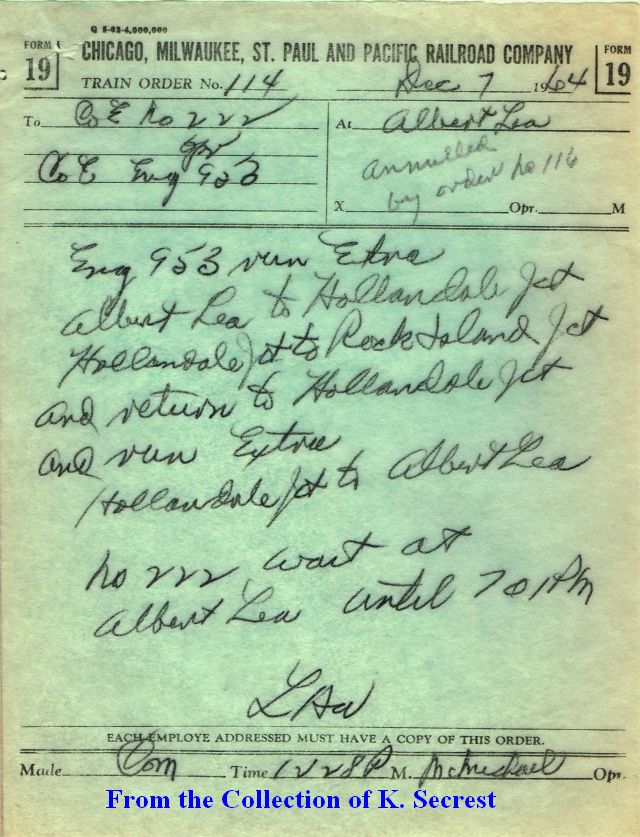 Q 5-62-4,000,000
FORM 19
CHICAGO, MILWAUKEE, ST. PAUL AND PACIFIC RAILROAD COMPANY
FORM 19
TRAIN ORDER No. 114 Dec 7 1964
To C&E No 222 At Albert Lea
C&E Eng 953
annulled
by order No 116
X Opr. M
Eng 953 run Extra
Albert Lea to Hollandale Jct
Hollandale Jct to Rock Island Jct
and return to Hollandale Jct
and run Extra
Hollandale Jct to Albert Lea
No 222 wait at
Albert Lea until 701PM
LHW
EACH EMPLOYE ADDRESSED MUST HAVE A COPY OF THIS ORDER.
Made Com Time 1228P M. McMichael Opr.
From the Collection of K. Secrest